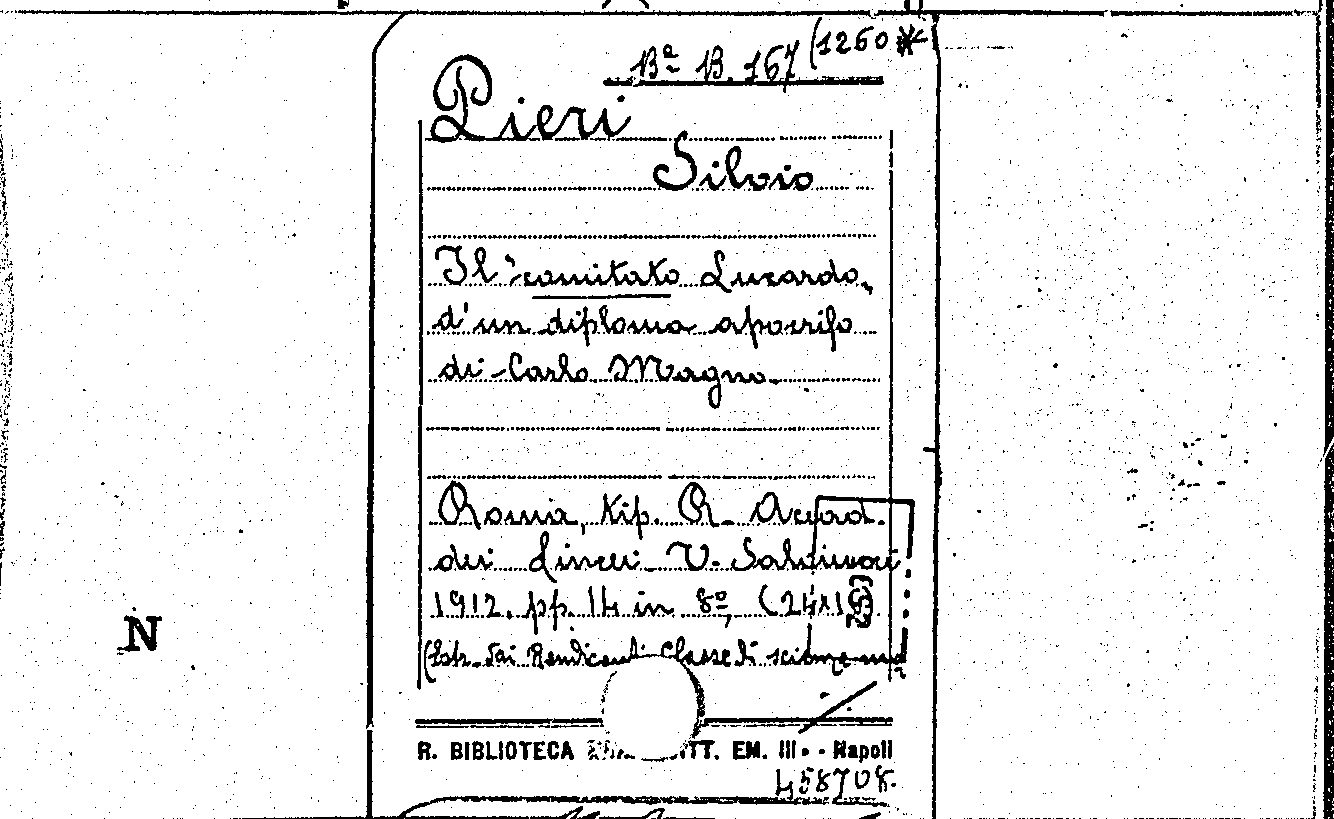 Ba B. 167 (1260 *
Pieri
Silvio
Il "comitato Lucardo,
d'un diploma apocrifo
di Carlo Magno.
Roma, tip. R. Accad.
dei Lincei V. Salviucci
1912. pp. 14 in 8º, (24x1
(Estr. dai Rendiconti Classe di scienze
N
R. BIBLIOTECA VITT. EM. III - Napoli
458708.